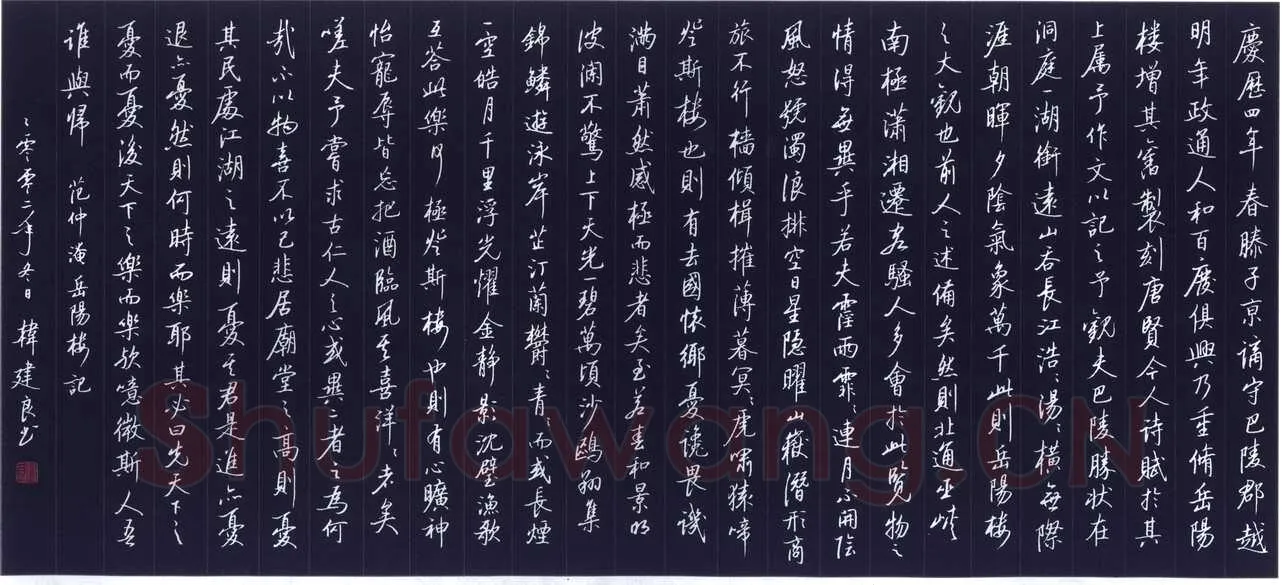 慶歷四年春滕子京謫守巴陵郡越
明年政通人和百廢俱興乃重脩岳陽
樓增其舊製刻唐賢今人詩賦於其
上属予作文以記之予觀夫巴陵勝状在
洞庭一湖銜遠山吞長江浩﹕湯﹕橫無際
涯朝暉夕陰氣象萬千此則岳陽樓
之大觀也前人之述備矣然則北通巫峽
南極瀟湘遷客騷人多會於此覽物之
情得無異乎若夫霪雨霏﹕連月不開陰
風怒號濁浪排空日星隐曜山嶽潛形商
旅不行檣傾楫摧薄暮冥﹕虎嘯猿啼
登斯樓也則有去國懷鄉憂讒畏譏
滿目蕭然感極而悲者矣至若春和景明
波瀾不驚上下天光碧萬頃沙鷗翔集
錦鱗遊泳岸芷汀蘭欝﹕青﹕而或長煙
一空皓月千里浮光耀金静影沈璧漁歌
互答此樂何極登斯樓也則有心曠神
怡寵辱皆忘把酒臨風其喜洋﹕者矣
嗟夫予嘗求古仁人之心或異二者之為何
哉不以物喜不以己悲居廟堂之高則憂
其民處江湖之遠則憂其君是進亦憂
退亦憂然則何時而樂耶其必曰先天下之
憂而憂後天下之樂而樂欤噫微斯人吾
誰與歸 范仲淹岳陽樓記
二零零二年冬日 韓建良书
Shufawang.CN